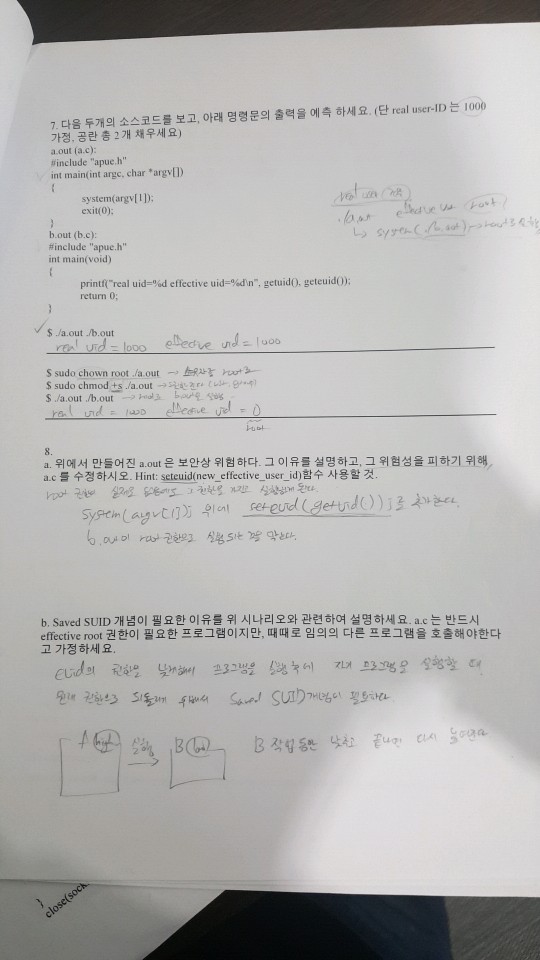 7. 다음 두개의 소스코드를 보고, 아래 명령문의 출력을 예측 하세요. (단 real user-ID 는 1000
가정, 공란 총 2개 채우세요)
a.out (a.c):
#include "apue.h"
int main(int argc, char *argv[])
{
system(argv[1]);
exit(0);
}
real user
./a.out effective user root
system( /b.out)
b.out (b.c):
#include "apue.h"
int main(void)
{
printf("real uid=%d effective uid=%d\n", getuid(), geteuid());
return 0;
}
$ ./a.out ./b.out
real uid = 1000 effective uid = 1000
$ sudo chown root ./a.out → 소유자를 root로
$ sudo chmod +s ./a.out
$ ./a.out ./b.out
real uid = 1000 effective uid = 0
root
8.
a. 위에서 만들어진 a.out 은 보안상 위험하다. 그 이유를 설명하고, 그 위험성을 피하기 위해,
a.c 를 수정하시오. Hint: seteuid(new_effective_user_id)함수 사용할 것.
root 권한이 그 권한을 가지고 실행하게 된다.
system(argv[1]); 위에 seteuid(getuid()); 를 추가한다.
b.out이 root 권한으로 실행되는 것을 막는다.
b. Saved SUID 개념이 필요한 이유를 위 시나리오와 관련하여 설명하세요. a.c 는 반드시
effective root 권한이 필요한 프로그램이지만, 때때로 임의의 다른 프로그램을 호출해야한다
고 가정하세요.
euid의 권한을 낮춰서 프로그램을 실행 후에 다시 프로그램을 실행할 때
원래 권한으로 되돌리기 위해서 Saved SUID개념이 필요하다.
A high 실행 → B low B 작업동안 낮추고 끝나면 다시 높인다
}
close(sock